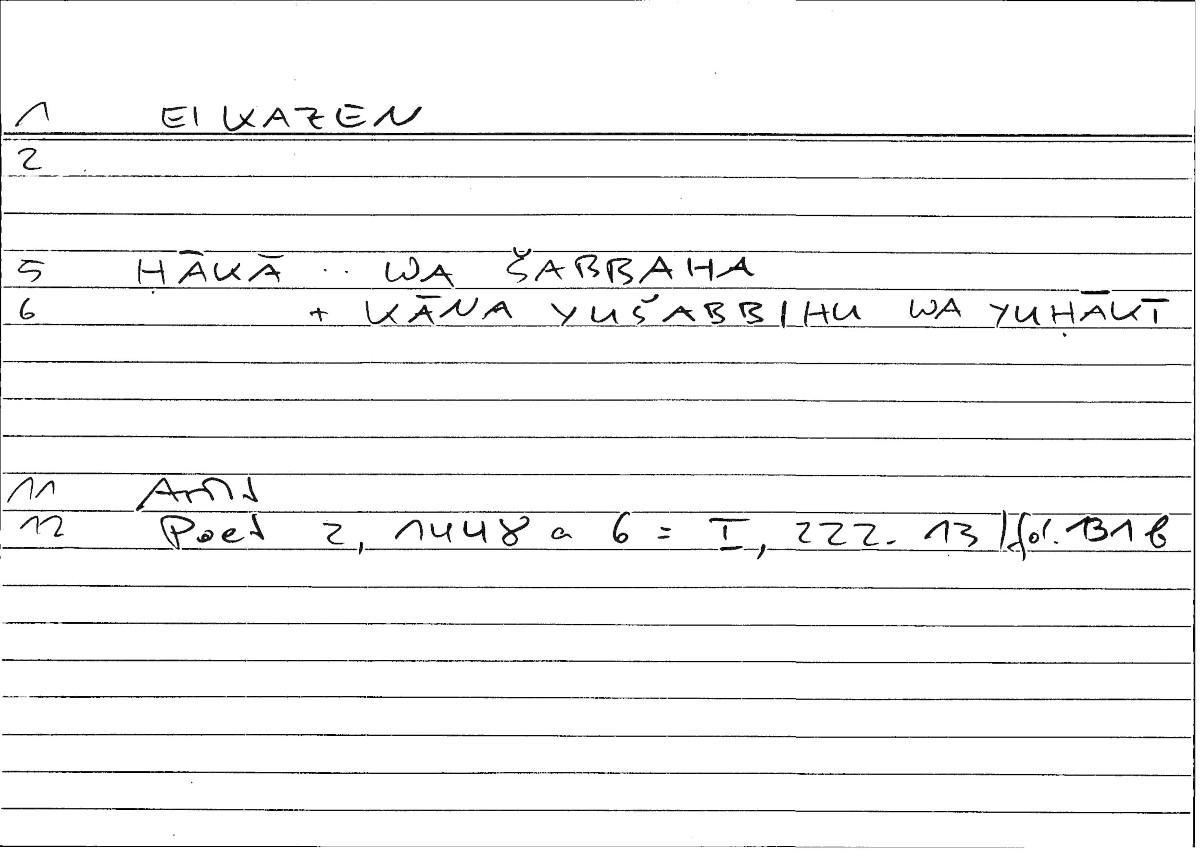 1 EIKAZEN
2
5 ḤĀKĀ .. WA ŠABBAHA
6 + KĀNA YUŠABBIHU WA YUḤĀKĪ
11 Arist
12 Poet 2, 1448 a 6 = I, 222. 13 / fol. 131 b